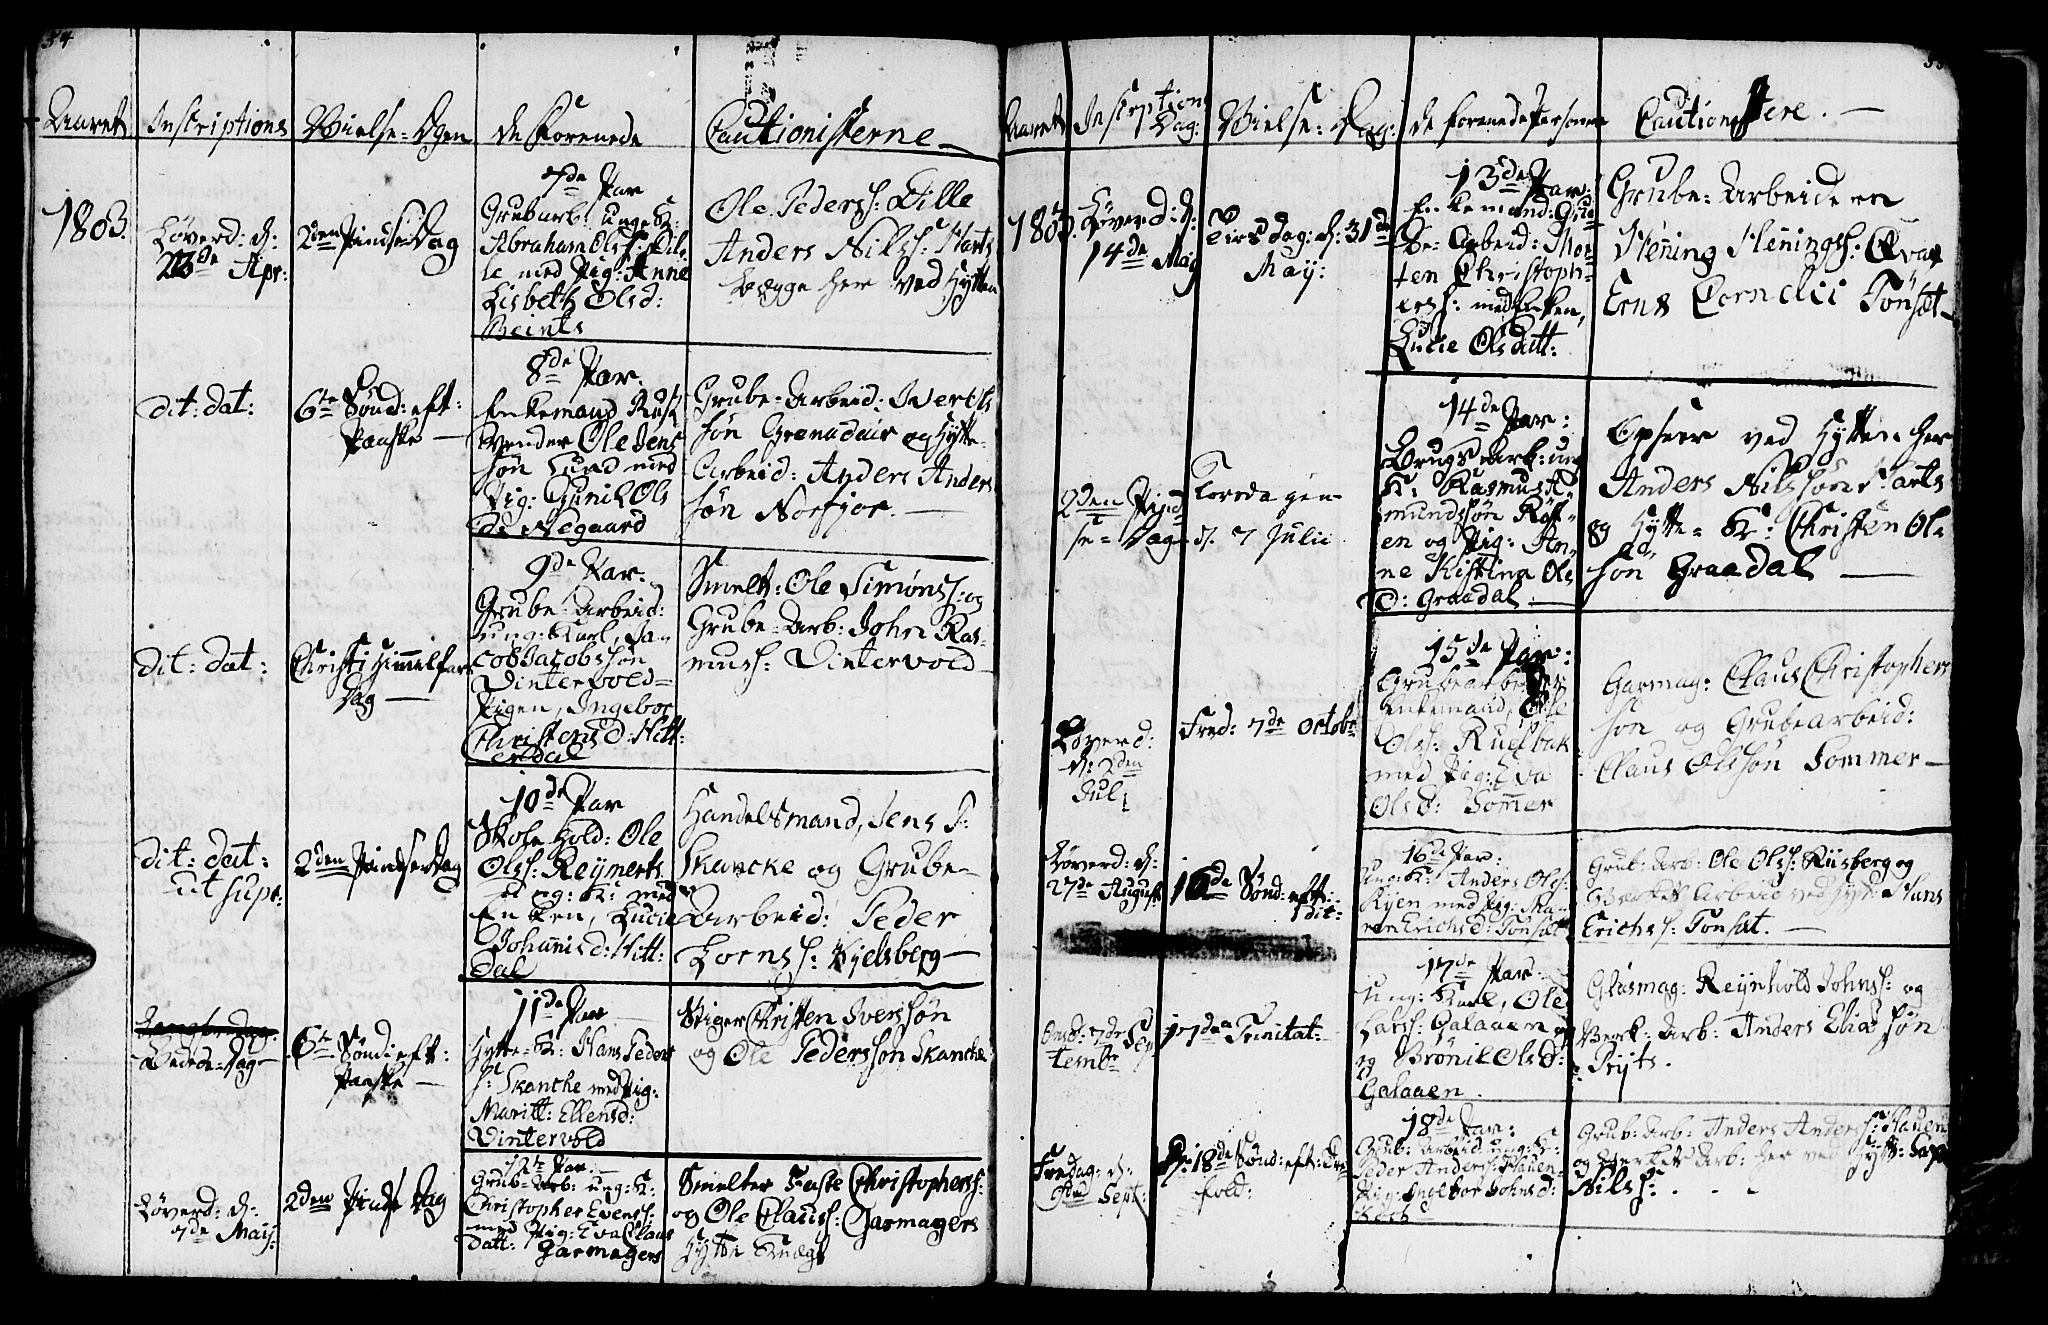 34
Aaret
Inscriptions
Vielse=Dgen
de Forenede
Cautionisterne
1803.
Løverd: d:
23de Apr:
2den Pindse Dag
7de Par
Grubarb: unge K:
Abraham Olss: Lil-
le med Pig: Anne
Lisbeth Olsd:
Beints
Ole Pederss: Lille
Anders Nilss:
begge her ved Hytten
dit: dat:
6te Sønd: eft:
Paaske
8de Par.
Enkemand Rusk
Vender Ole Jens
søn Lund med
Pig: Gunil Ols
D: Aegaard
Grube-Arbeid: Iver Ols
søn Grenadair og Hytte-
Arbeid: Anders Anders
søn Norfjor.
dit: dat:
Christi Himmelfars
Dag
9de Par.
Grube-Arbeid:
ung: Karl, Ja-
cob Jacobssøn
Vintervold=
Pigen, Ingebor
Christensd: Hitt:
erdal
Smelt: Ole Simonss: og
Grube-Arb: John Ras-
muss: Vintervold
dit: dat:
ut supr:
2den Pindse Dag
10de Par
Skolehold: Ole
Olss: Reynerts
og ug: K: med
Enken, Lucie
Johannisd: Hitt:
dal
Handelsmand, Jens P:
Skancke og Grube-
Arbeid: Peder
Lorns: Kjelsberg
Beede=Dag
6te Sønd: eft:
Paaske
11de Par
Hytte-K: Hans Peders
s: Skancke med Pig:
Maritt: Ellensd:
Vintervold
Stiger Christen Iverssøn
og Ole Pederssøn Skancke
Løverd: d:
7de May:
2den Pindse Dag
12te Par.
Grub-Arb: ung: K:
Christopher Evenss:
med Pig: Eva Claus
datt: Garmagers
Smelter Faste Christopherss:
og Ole Clauss: Garmagers
Hytte
Aaret
Inscription
Dag:
Vielse: Dag:
de forenede Personer
Cautionistere.
1803.
Løverd: d:
14de May
Tirsdag: d: 31de
May:
13de Par:
Enkemand: Gru
be-Arbeid: Mor
ten Christoph-
erss: med Enken,
Lucie Olsdatt:
Grube=Arbeideren
Hening Henings: Qvar
Erns Cornelii Tönset
2den Pind
se=Dag
Torsdagen
d. 7 Julii
14de Par:
Brugs Arb: ung
K: Rasmus A-
mundssøn Røst-
en og Pig: An-
ne Kistina Ols
D: Graadal
Opseer ved Hytten her
Anders Nilssøn
og Hytte=K: Christen Ol-
søn Graadal
Løverd:
d: 2den
Juli
Fred: 7de Octobr
15de Par:
Grubearbeider
Enkemand, Ole
Olss: Ruelbak
med Pig: Eva
Olsd: Sommer
Garmag: Claus Christophers
søn og Grubearbeid:
Claus Olssøn Sommer
Løverd: d:
27de August
16de Sønd: eft:
16de Par:
Ung: K: Anders Olss:
Ryen med Pig: Ma-
ren Erichsd: Tönset
Grub: Arb: Ole Olss: Riisberg og
Værkets Arbeid ved Hytt: Hans
Erichss: Tonsæt.
Onsd: 7de Sep
tembr
17den Trinitat:
17de Par
Ung: Karl, Ole
Larss: Galaaen
og Brønil Olsd:
Galaaen.
Glasmag: Reynhold Johnss: og
Verk: Arb: Anders Eliassøn
Pryts.
Fredag: d:
Sept:
D: 18de Sønd: eft: Tre
fold:
18de Par:
Grub: Arbeid: ung: K:
Peder Anderss: Hauen
Pig: Ingebor Johnsd:
Grub: Arb: Anders Anderss: Hauen
og Værkets Arb: her ved Hytt:
Nilss: